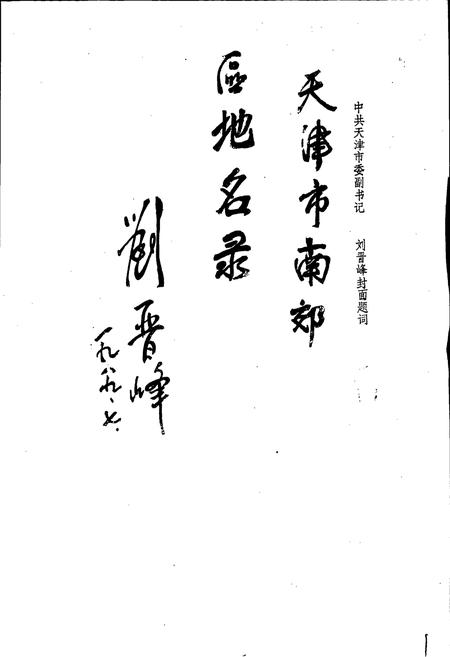 中共天津市委副书记 刘晋峰封面题词
天津市南郊
區地名录
劉晋峰
一九八九、七、